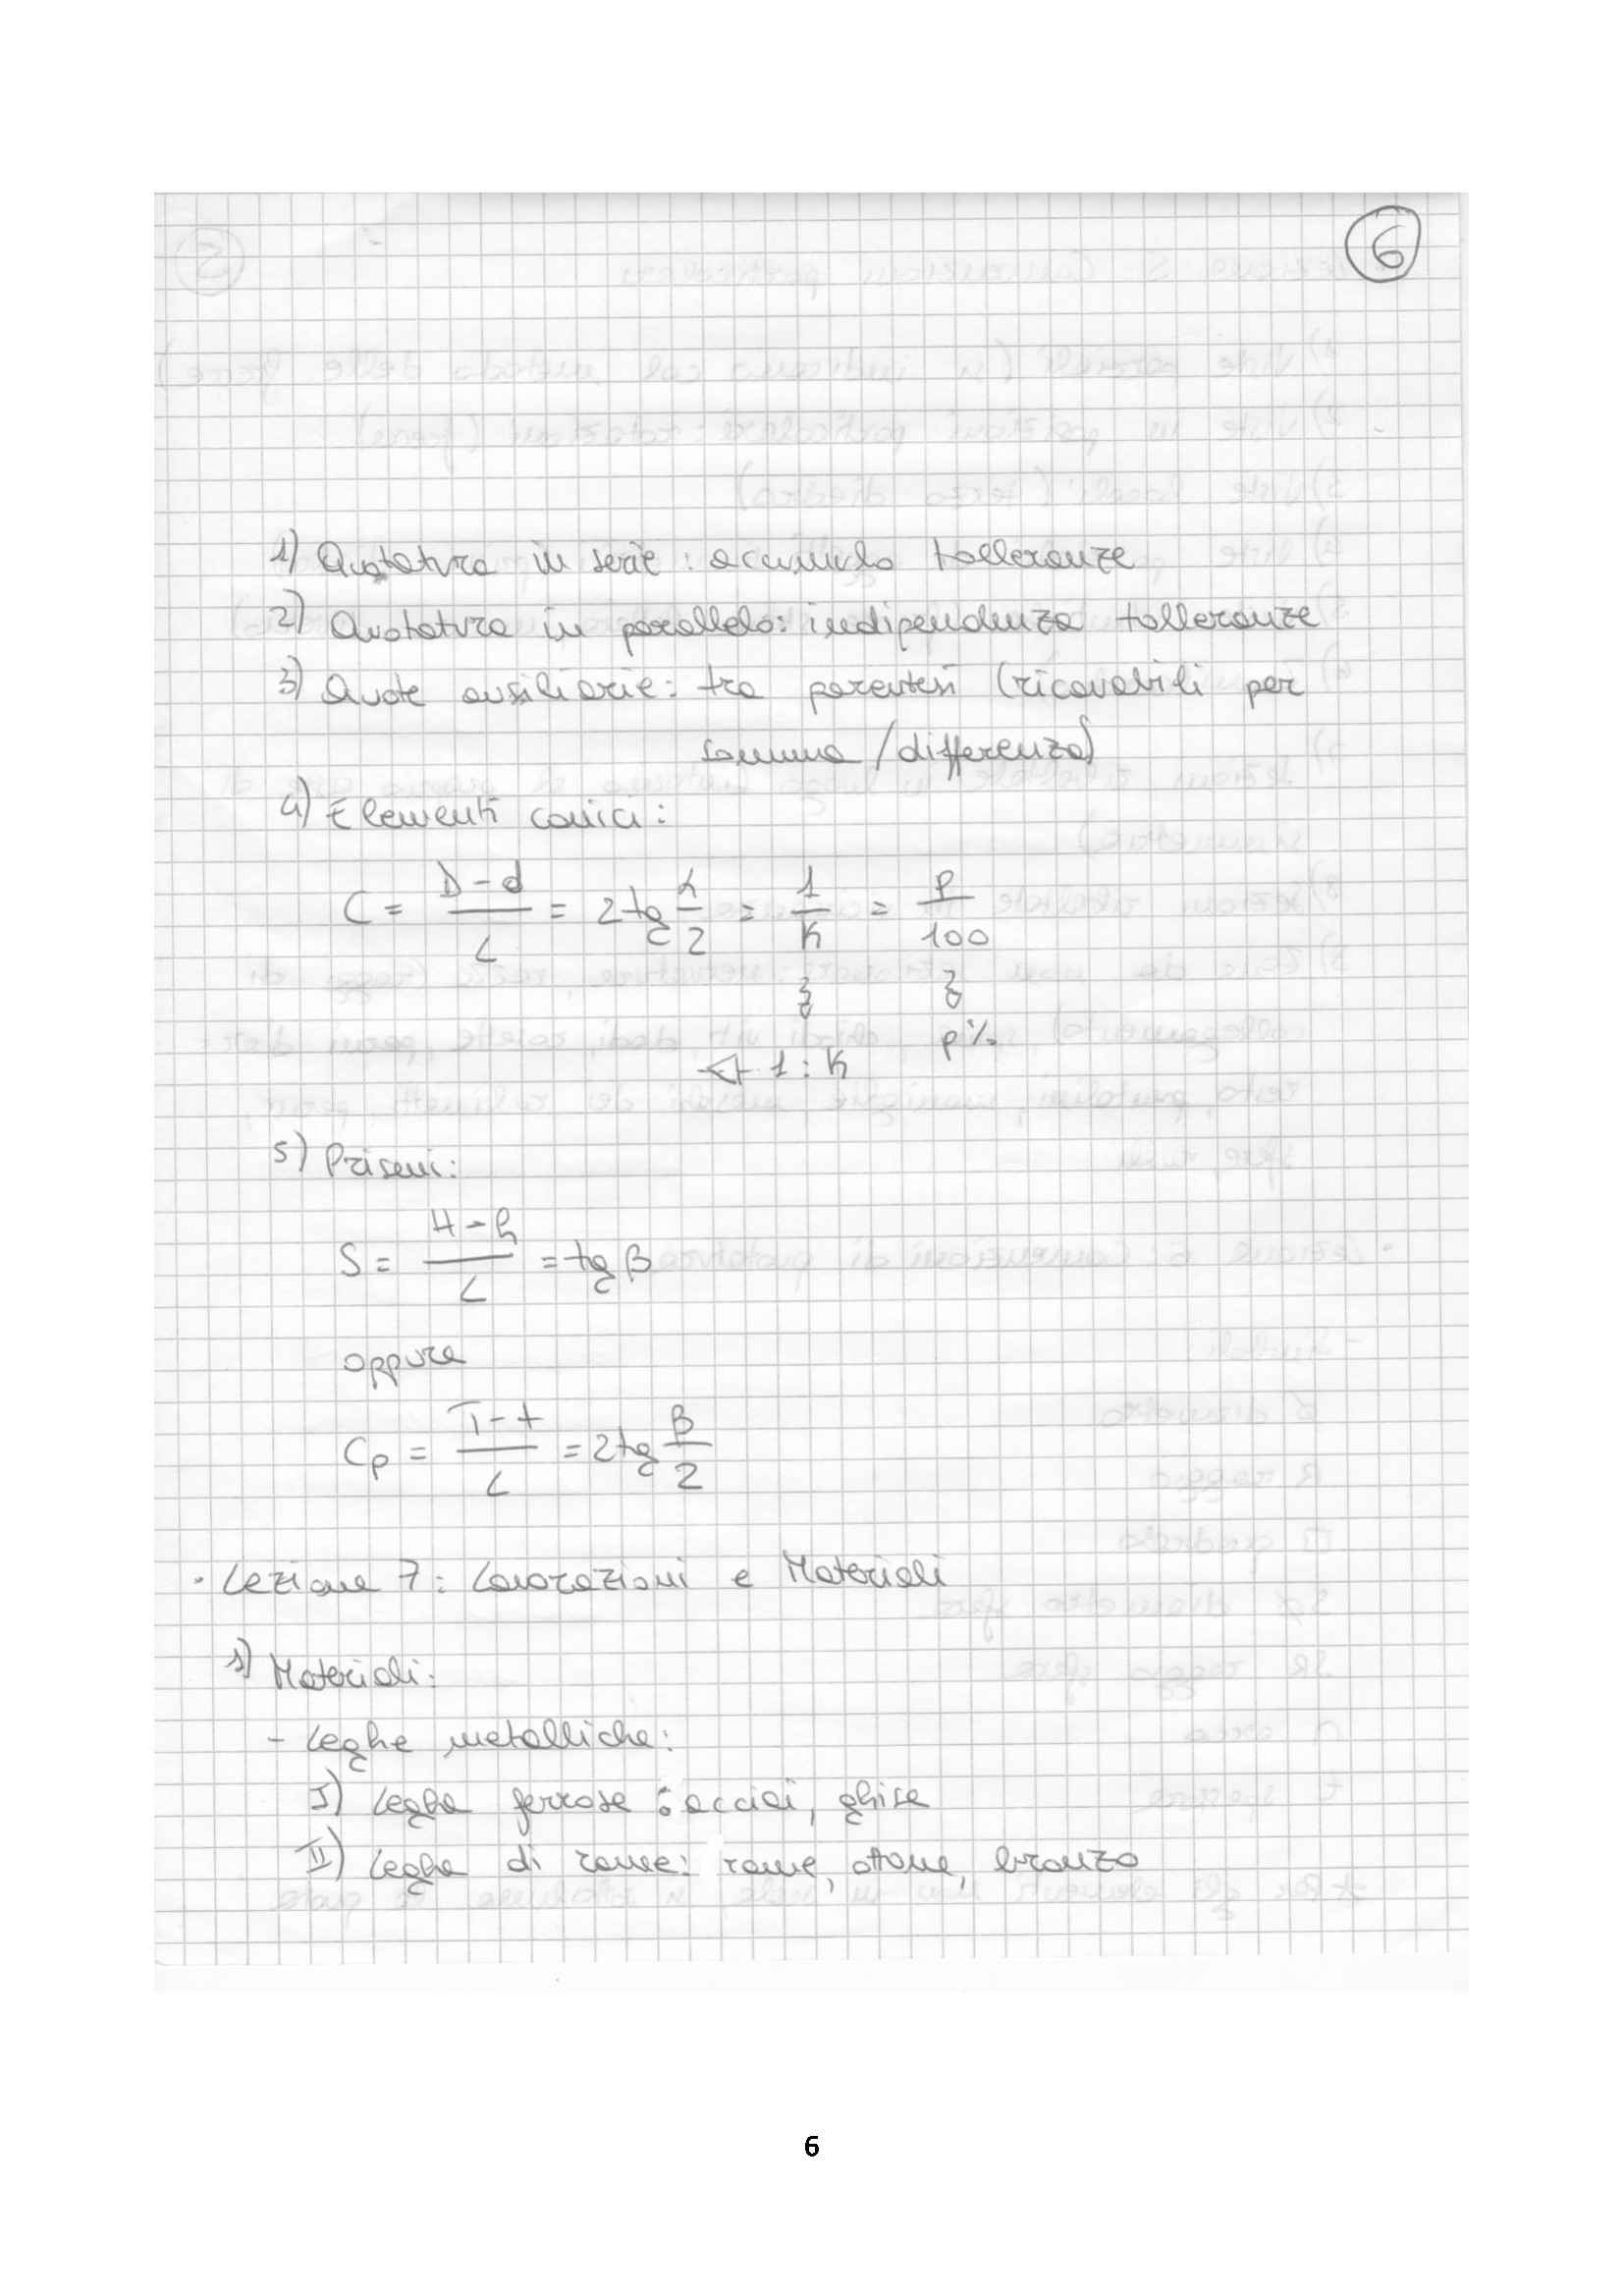 6
1) Quotatura in serie: accumulo tolleranze
2) Quotatura in parallelo: indipendenza tolleranze
3) Quote ausiliarie: tra parentesi (ricavabili per
somma/differenza)
4) Elementi conici:
C = (D-d)/L = 2tg α/2 = 1/K = p/100
1:K p%
5) Prismi:
S = (H-h)/L = tg β
oppure
Cp = (T-t)/L = 2tg β/2
· Lezione 7: Lavorazioni e Materiali
1) Materiali:
- Leghe metalliche:
I) Leghe ferrose: acciai, ghise
II) Leghe di rame: rame, ottone, bronzo
6